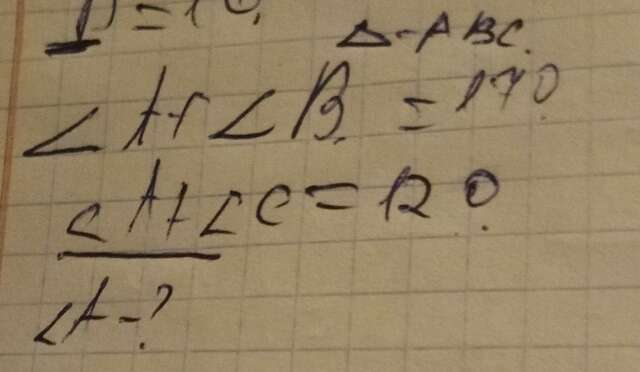 Δ-ABC.
∠A+∠B=170
∠A+∠C=120
∠A-?